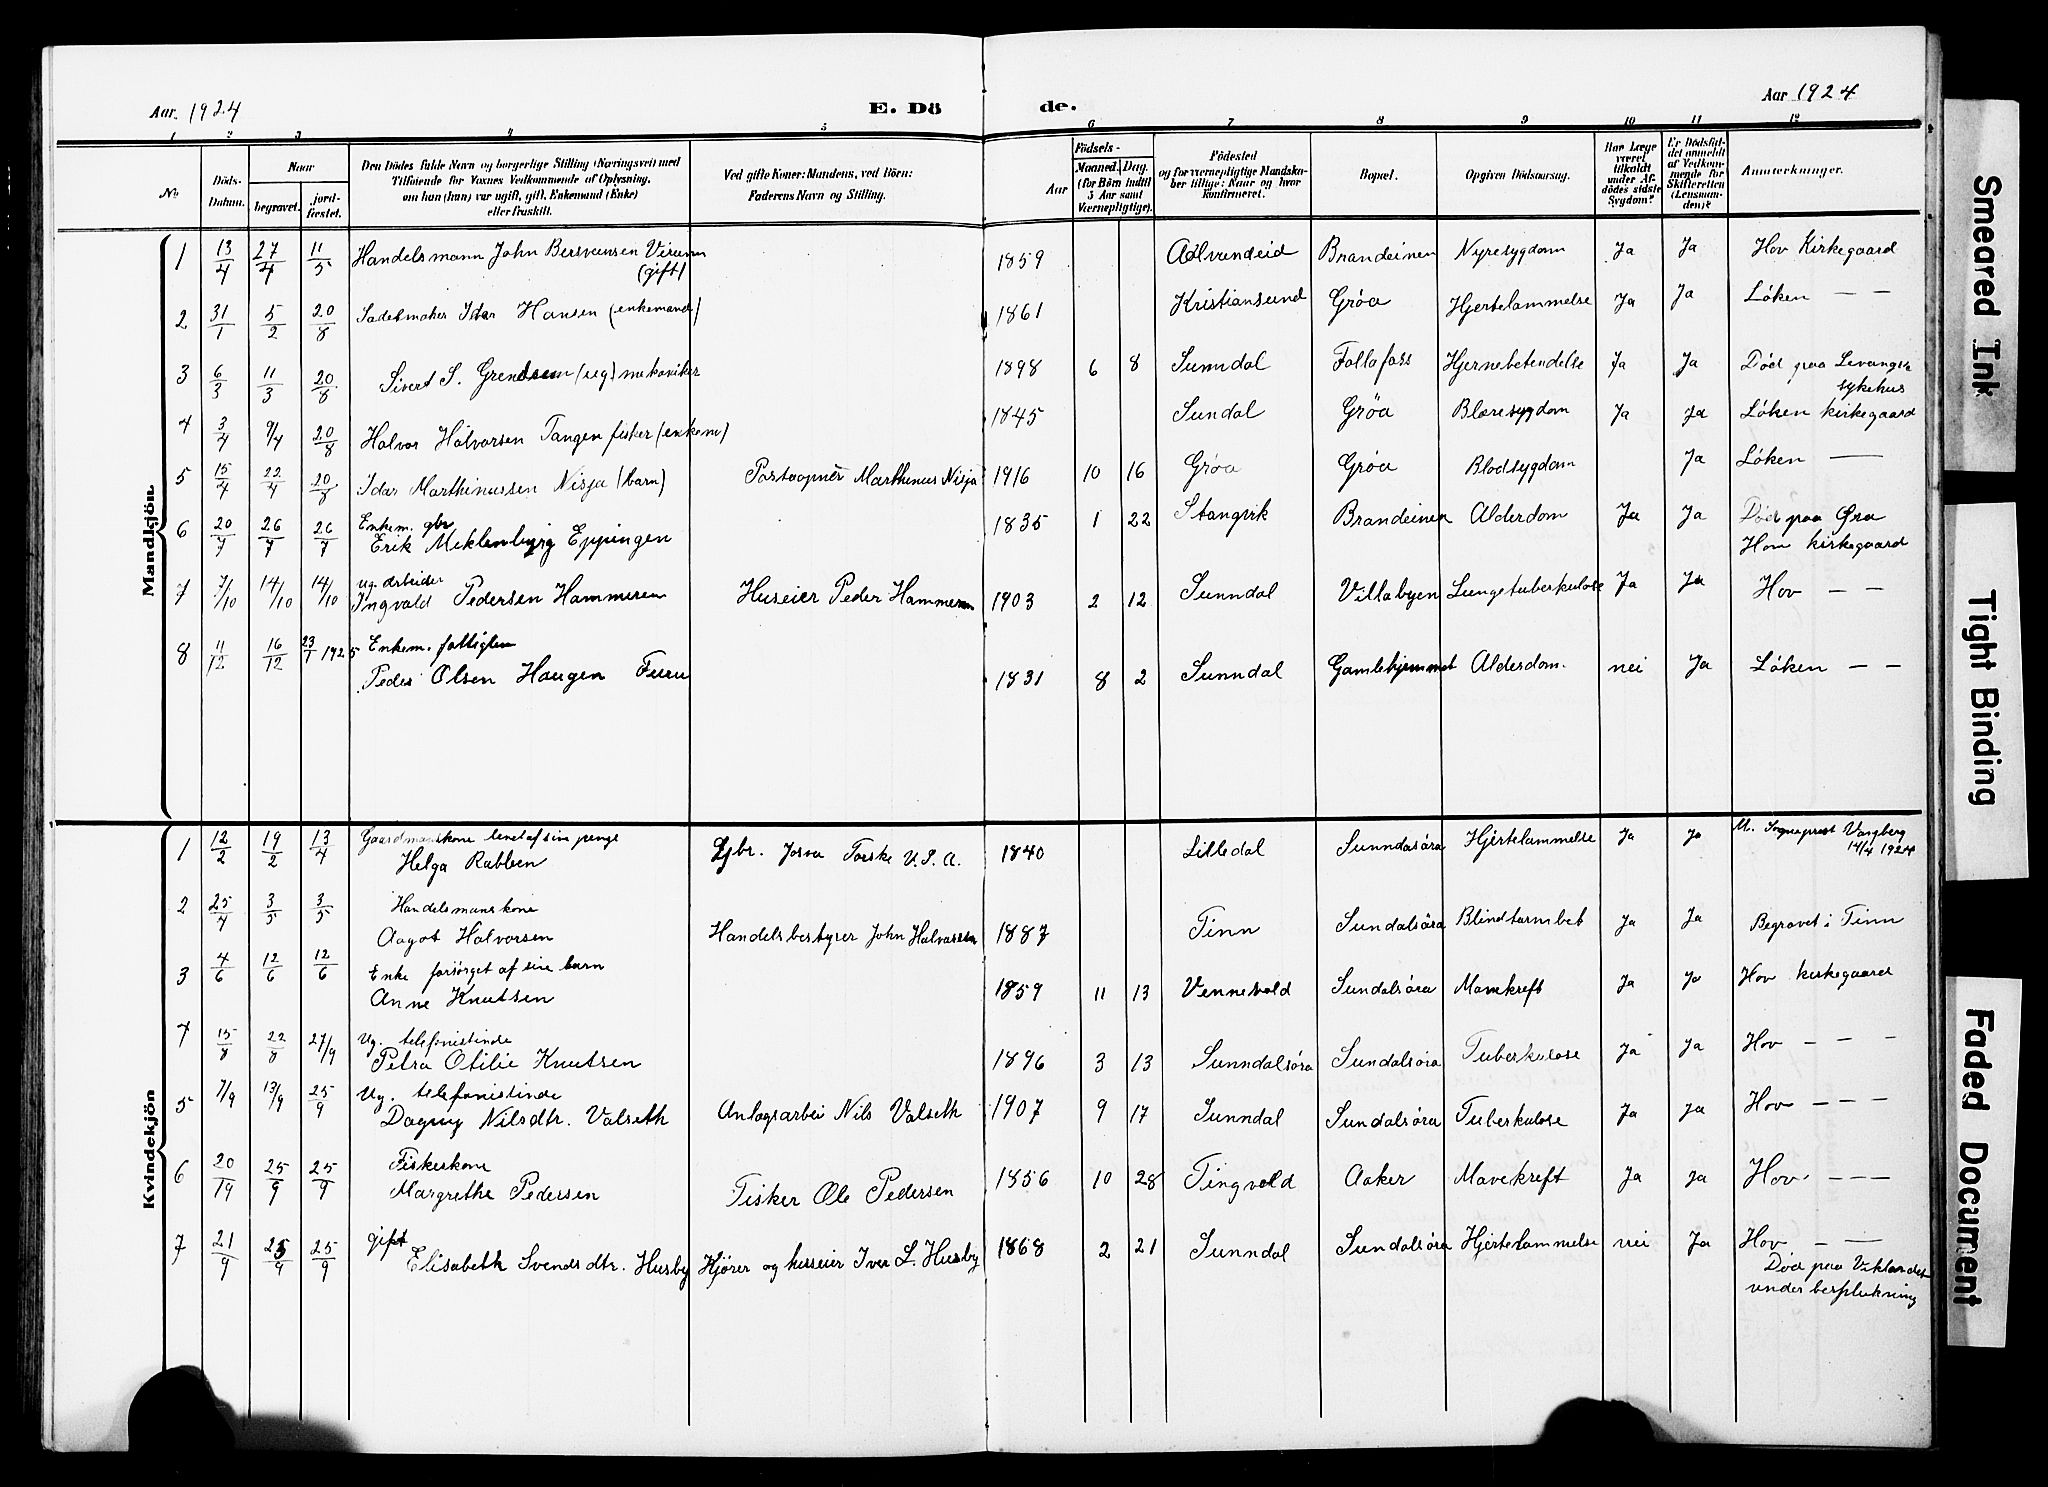 Aar. 1924
E. Dö
de.
Aar 1924
1 2 3 4 5 6 7 8 9 10 11 12
No
Döds-Datum.
Naar
begravet.
jord-fæstet.
Den Dödes fulde Navn og borgerlige Stilling (Næringsvei) med
Tilföiende for Voxnes Vedkommende af Oplysning,
om han (hun) var ugift, gift, Enkemand (Enke)
eller fraskilt.
Ved gifte Koner: Mandens, ved Börn:
Faderens Navn og Stilling.
Födsels-
Aar
Maaned. Dag.
(for Börn indtil
5 Aar samt
Værnepligtige).
Födested
og for værnepligtige Mandska-
ber tillige: Naar og hvor
konfirmeret.
Bopæl.
Opgiven Dödsaarsag.
Har Læge
været
tilkaldt
under Af-
dödes sidste
Sygdom?
Er Dödsfal-
det anmeldt
af Vedkom-
mende for
Skifteretten
(Lensman-
den)?
Anmerkninger.
Mandkjön.
1 13/4 27/4 11/5 Handelsmann John (gift) 1859 Brandeinen Nyresygdom Ja Ja Hov Kirkegaard
2 31/1 5/2 20/8 Sadelmaker Idar Hansen (enkemand) 1861 Kristiansund Grøa Hjertelammelse Ja Ja Løken — —
3 6/3 11/3 20/8 Sivert S. (ug) mekaniker 1898 6 8 Sunndal Follafoss Hjernebetendelse Ja Ja Død paa Levanger
sykehus
4 3/4 9/4 20/8 Halvor Halvorsen Tangen fisker (enkem) 1845 Sundal Grøa Blæresygdom Ja Ja Løken kirkegaard
5 15/4 22/4 20/8 Idar Marthinussen Nisja (barn) Marthinus Nisja 1916 10 16 Grøa Grøa Blodsygdom Ja Løken —
6 20/7 26/7 26/7 Enkem. gbr
Erik Meklenbyrg Eppingen 1835 1 22 Stangvik Brandeinen Alderdom Ja Ja Død paa Øra
Hov kirkegaard
7 7/10 14/10 14/10 ug. arbeider
Ingvald Pedersen Hammeren Huseier Peder Hammeren 1903 2 12 Sunndal Villabyen Lungetuberkulose Ja Ja Hov — —
8 11/12 16/12 23/1 1925 Enkem. fattiglem
Peder Olsen Haugen Furu 1831 8 2 Sunndal Gamlehjemmet Alderdom. nei Ja Løken — —
Kvindekjön
1 12/2 19/2 13/4 Gaardmanskone levet af sine penge
Helga Rabben Gbr. Torske U.S.A. 1840 Lilledal Sunndalsøra Hjertelammelse Ja Ja M. Sogneprest Vangberg
14/4 1924
2 25/4 3/5 3/5 Handelsmanskone
Aagot Halvorsen Handelsbestyrer John Halvorsen 1887 Tinn Sundalsöra Blindtarmbet Ja Ja Begravet i Tinn
3 4/6 12/6 12/6 Enke forsörget af sine barn
Anne Knutsen 1859 11 13 Vennevold Sundalsøra Mavekreft Ja Ja Hov kirkegaard
4 15/8 22/8 27/9 Ug. telefonistinde
Petra Otilie Knutsen 1896 3 13 Sunndalsøra Sundalsøra Tuberkulose Ja Ja Hov — — —
5 7/9 13/9 25/9 Ug. telefonistinde
Dagny Nilsdtr. Valseth Anlagsarbei Nils Valseth 1907 9 17 Sunndal Sundalsøra Tuberkulose Ja Ja Hov — — —
6 20/19 25/9 25/9 Fiskerkone
Margrethe Pedersen Fisker Ole Pedersen 1856 10 28 Tingvold Aaker Mavekreft Ja Ja Hov. — — —
7 21/9 25/9 25/9 gift
Elisabeth Svendsdtr. Husby Kjører og huseier Iver L. Husby 1868 2 21 Sunndal Sundalsøra Hjertelammelse nei Ja Hov — —
Død paa Viklandet
under bærplukning
Smeared Ink
Tight Binding
Faded Document